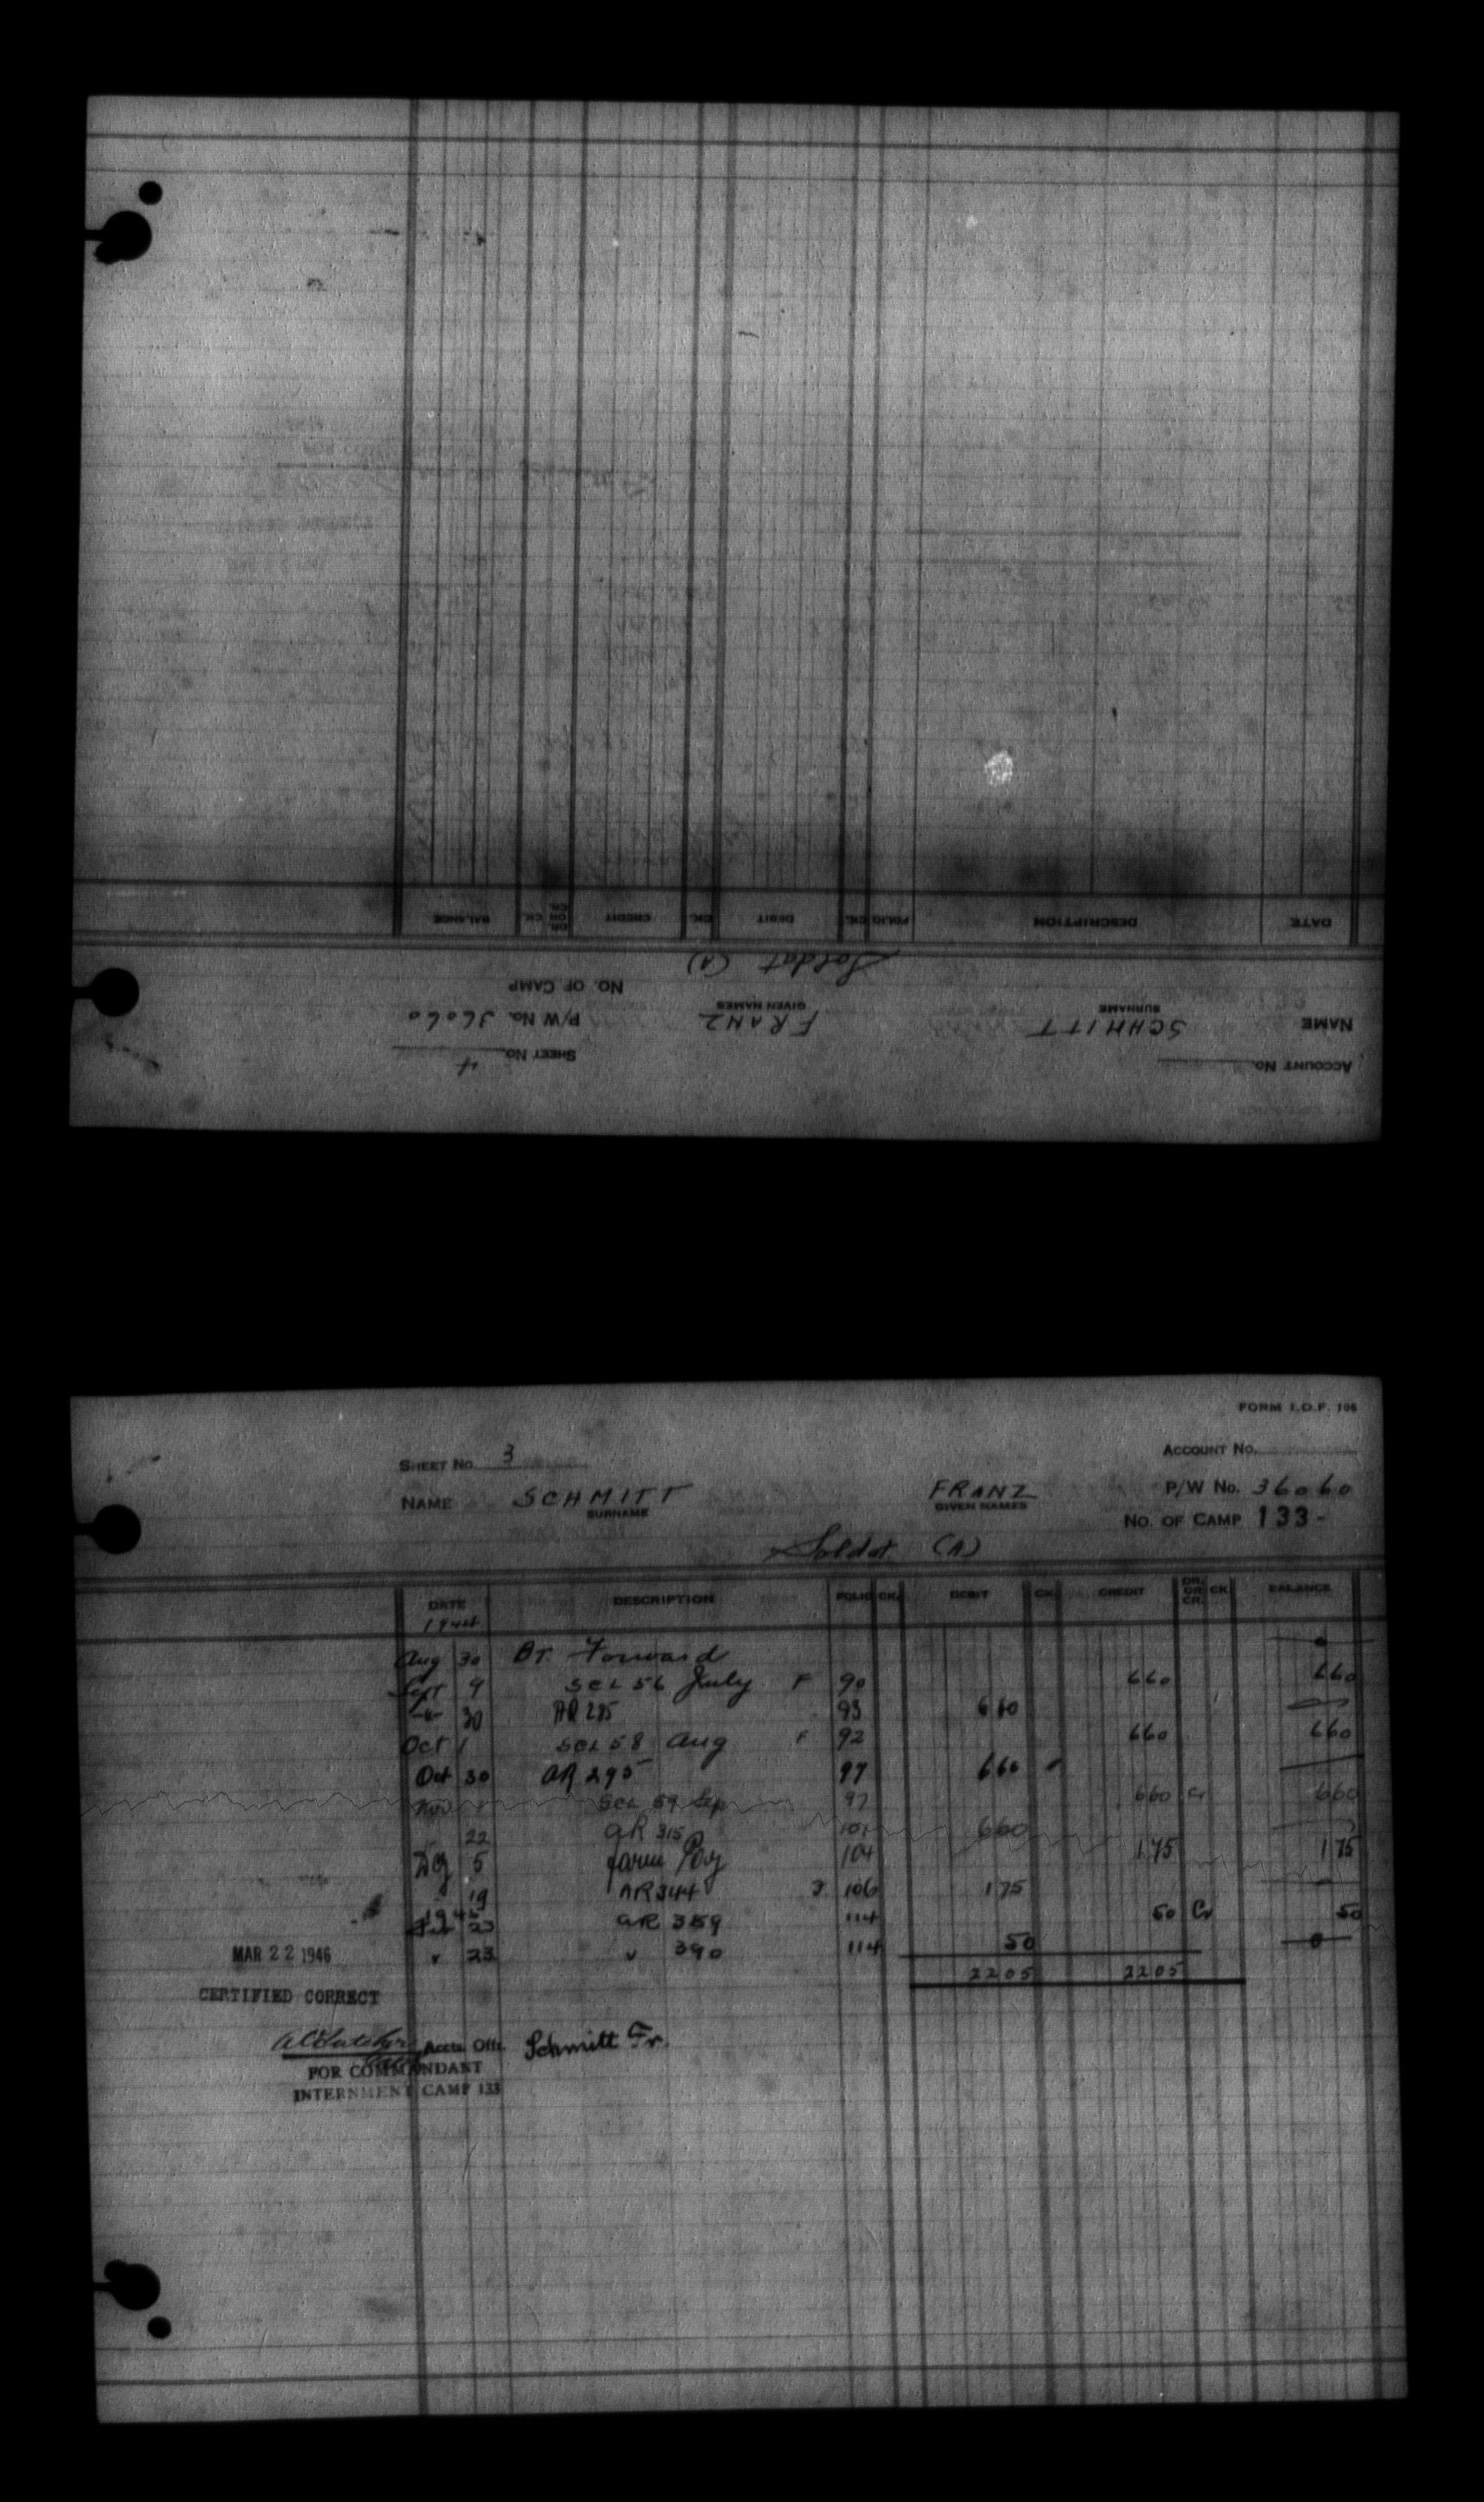 ACCOUNT No.
SHEET No. 4
NAME SCHMITT FRANZ P/W No. 36060
SURNAME GIVEN NAMES
NO. OF CAMP
Soldat (A)
DATE DESCRIPTION FOLIO CK. DEBIT CK. CREDIT DR. OR CR. CK. BALANCE
FORM I.O.F. 106
SHEET No. 3 ACCOUNT No.
NAME SCHMITT FRANZ P/W No. 36060
SURNAME GIVEN NAMES
NO. OF CAMP 133-
Soldat (A)
DATE DESCRIPTION FOLIO CK. DEBIT CK. CREDIT DR. OR CR. CK. BALANCE
1944
Aug 30 BT. Forward 0
Sept 9 SCL 56 July F 90 660 660
" 30 AR 285 93 660
Oct 1 SCL 58 Aug F 92 660 660
Oct 30 AR 295 97 660
Nov 1 SCL 59 Sep 97 660 Cr 660
22 AR 315 101 660
5 Farm Pay 104 175 175
19 AR 344 106 175
1945
Feb 23 AR 389 114 50 Cr 50
" 23 " 390 114 50 0
2205 2205
MAR 22 1946
CERTIFIED CORRECT
Accts. Offr. Schmitt Fr.
FOR COMMANDANT
INTERNMENT CAMP 133